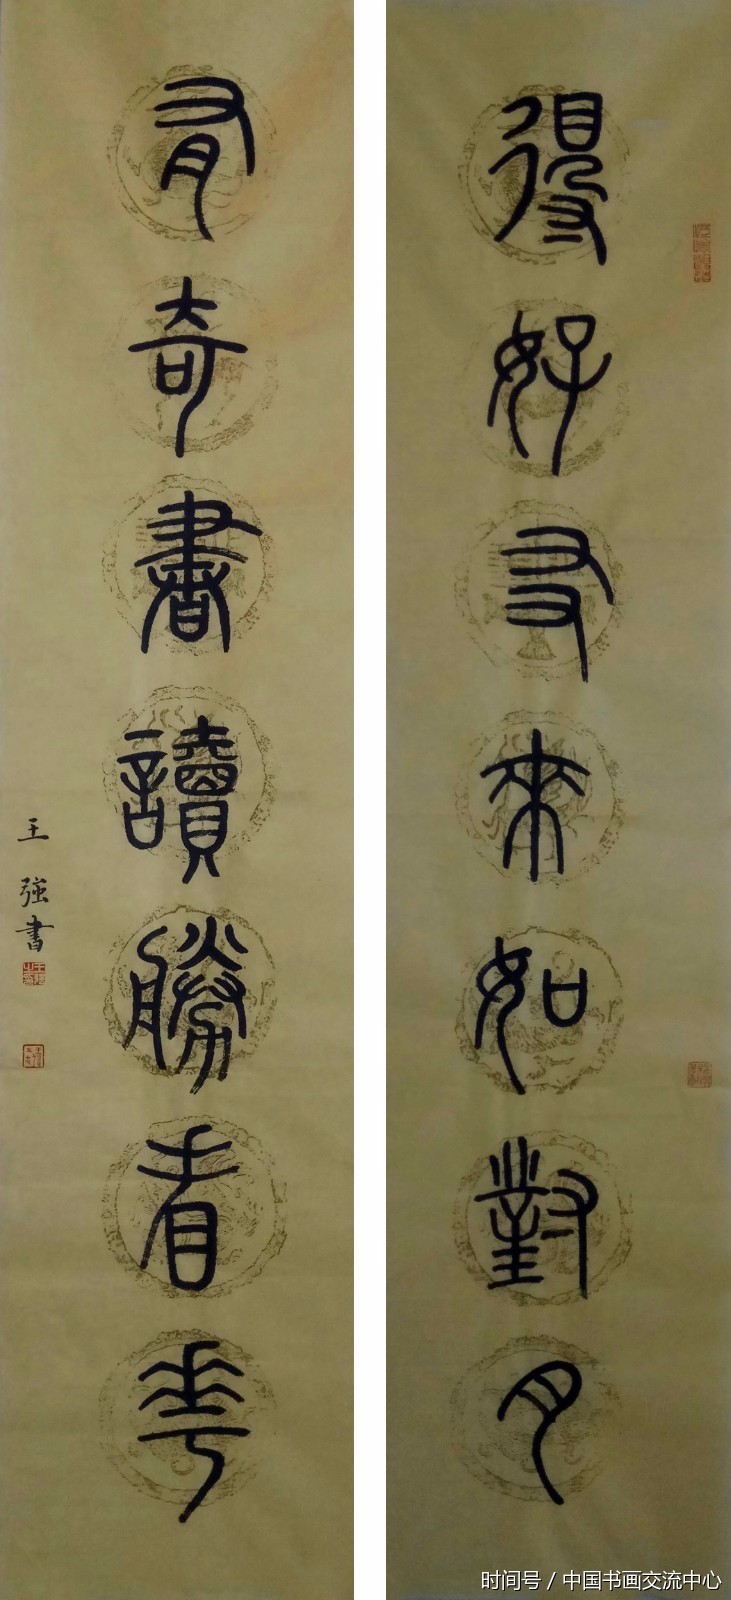 得好友來如對月
有奇書讀勝看花
王強書
时间号 / 中国书画交流中心